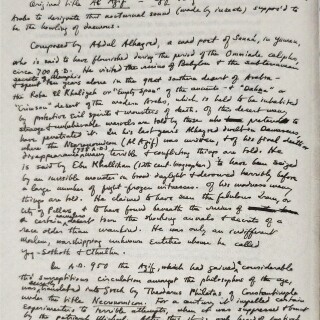 Original title Al Azif —
Arabs to designate that nocturnal sound (made by insects) suppos'd to
be the howling of daemons.
Composed by Abdul Alhazred, a mad poet of Sanaá, in Yemen,
who is said to have flourished during the period of the Ommiade caliphs,
circa 700 A.D. He visited the ruins of Babylon & the subterranean
& spent ten years alone in the great southern desert of Arabia —
the Roba El Khaliyeh or "Empty Space" of the ancients — & "Dahna" or
"Crimson" desert of the modern Arabs, which is held to be inhabited
by protective evil spirits & monsters of death. Of this desert many
strange & unbelievable marvels are told by those who pretend to
have penetrated it. In his last years Alhazred dwelt in Damascus,
where the Necronomicon (Al Azif) was written, & of his final death or
disappearance (738 A.D.) many terrible & conflicting things are told. He
is said by Ebn Khallikan (12th cent. biographer) to have been seized
by an invisible monster in broad daylight & devoured horribly before
a large number of fright-frozen witnesses. Of his madness many
things are told. He claimed to have seen the fabulous Irem, or
City of Pillars, & to have found beneath the ruins of
a certain nameless desert town the shocking annals & secrets of a
race older than mankind. He was only an indifferent
Moslem, worshipping unknown Entities whom he called
Yog-Sothoth & Cthulhu.
In A.D. 950 the Azif, which had gained considerable
tho' surreptitious circulation amongst the philosophers of the age,
was translated into Greek by Theodorus Philetas of Constantinople
under the title Necronomicon. For a century it impelled certain
experimenters to terrible attempts, when it was suppressed & burnt
by the patriarch Michael.